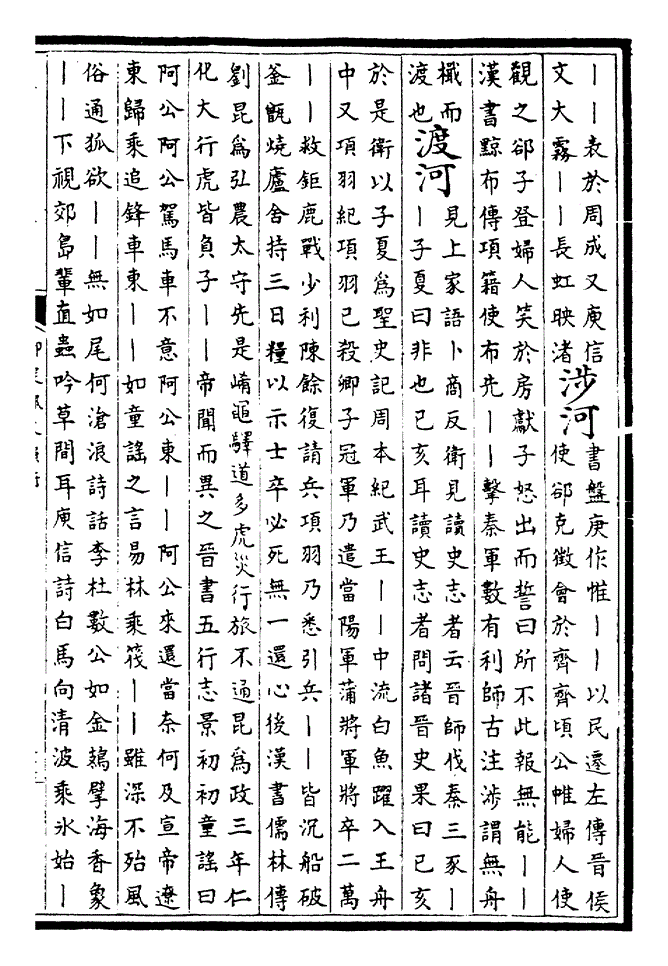 ——表於周成又庾信
文大霧——長虹映渚
涉河
書盤庚作惟——以民遷左傳晉侯
使郤克徵會於齊齊頃公帷婦人使
觀之郤子登婦人笑於房獻子怒出而誓曰所不此報無能——
漢書黥布傳項籍使布先——擊秦軍數有利師古注涉謂無舟
檝而
渡也
渡河
見上家語卜商反衛見讀史志者云晉師伐秦三豕—
—子夏曰非也己亥耳讀史志者問諸晉史果曰己亥
於是衛以子夏為聖史記周本紀武王——中流白魚躍入王舟
中又項羽紀項羽已殺卿子冠軍乃遣當陽軍蒲將軍將卒二萬
——救鉅鹿戰少利陳餘復請兵項羽乃悉引兵——皆沉船破
釜甑燒廬舍持三日糧以示士卒必死無一還心後漢書儒林傳
劉昆為弘農太守先是崤黽驛道多虎災行旅不通昆為政三年仁
化大行虎皆負子——帝聞而異之晉書五行志景初初童謠曰
阿公阿公駕馬車不意阿公東——阿公來還當奈何及宣帝遼
東歸乘追鋒車東——如童謠之言易林乘筏——雖深不殆風
俗通狐欲——無如尾何滄浪詩話李杜數公如金鳷擘海香象
——下視郊島輩直蟲吟草間耳庾信詩白馬向清波乘氷始—